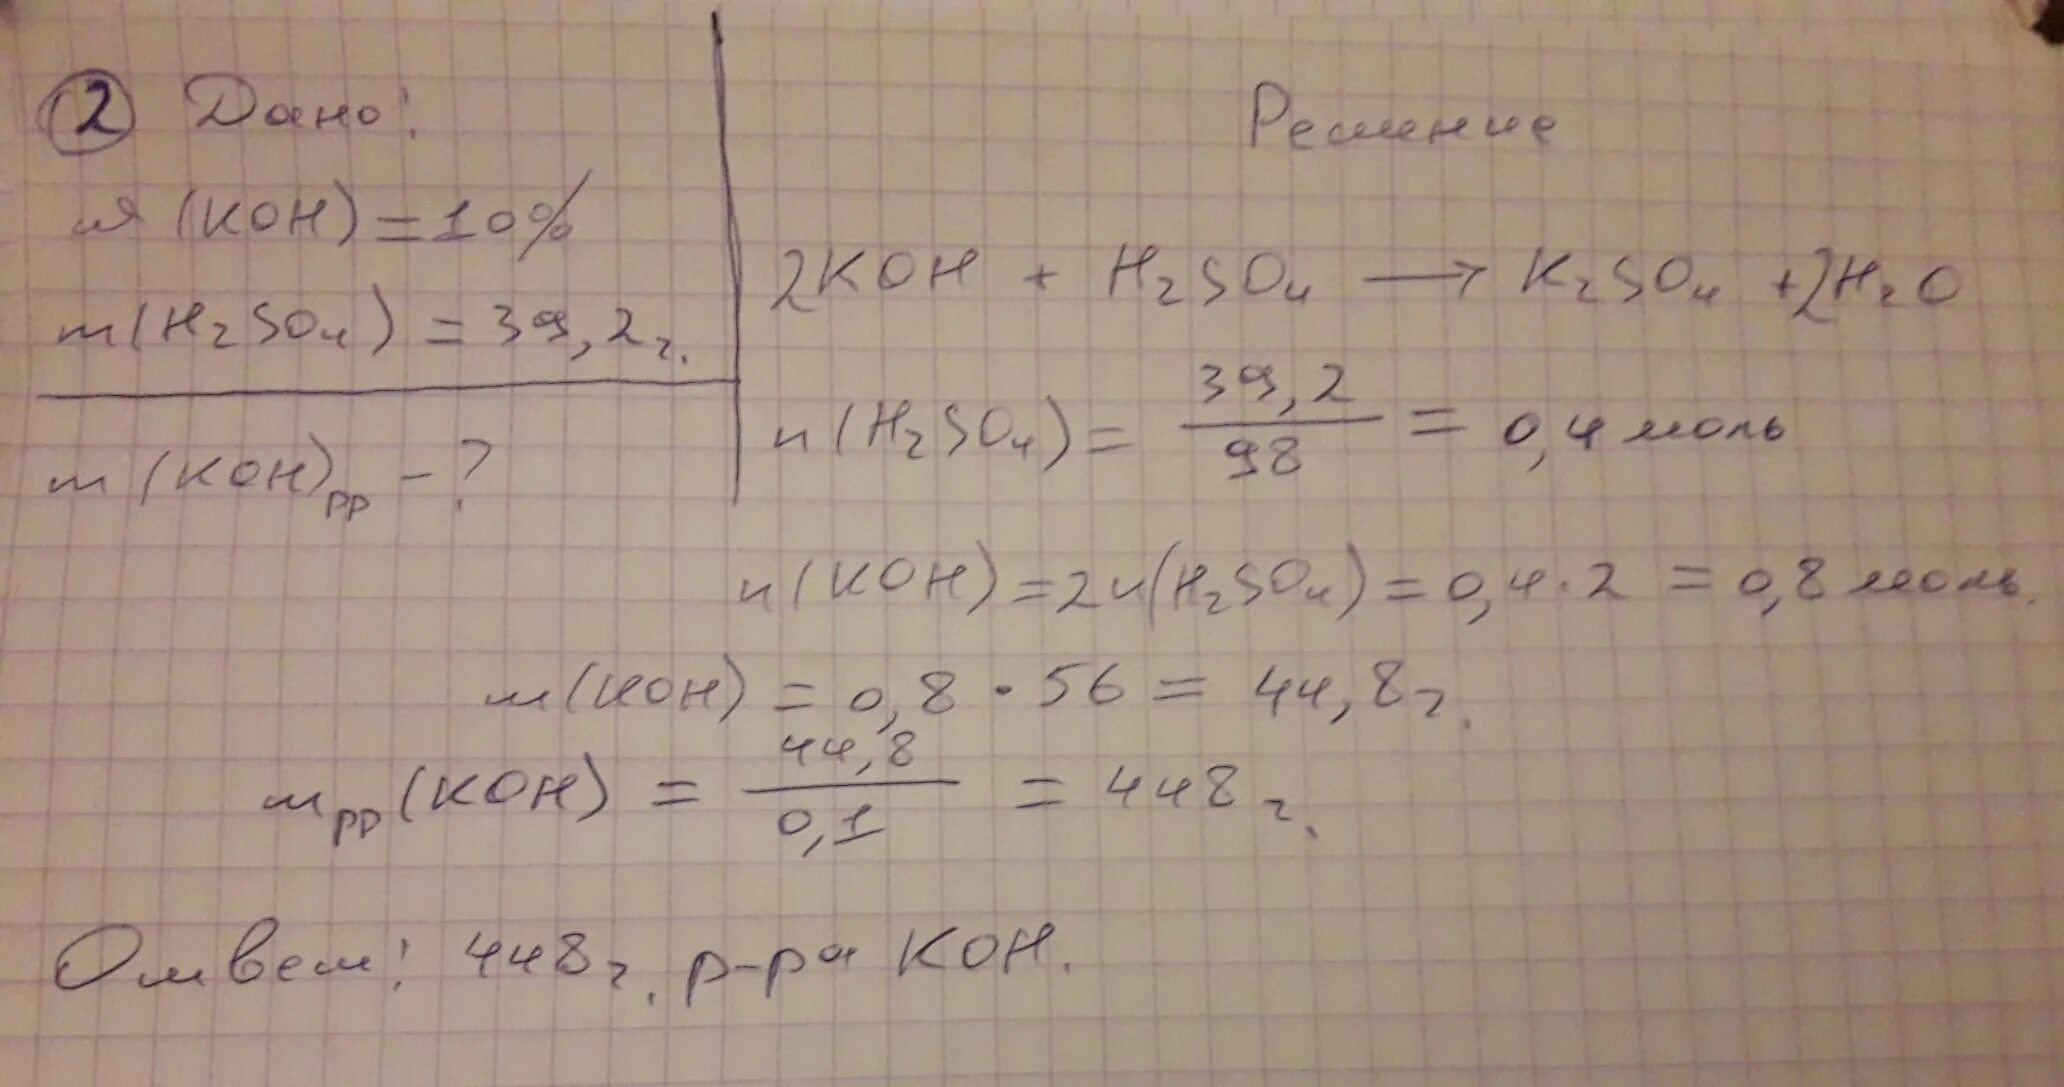 2 Дано:
мя (KOH) = 10%
m(H₂SO₄) = 39,2 г.
m(KOH)рр - ?
Решение
2KOH + H₂SO₄ → K₂SO₄ + 2H₂O
n(H₂SO₄) = 39,2/98 = 0,4 моль
n(KOH) = 2n(H₂SO₄) = 0,4 · 2 = 0,8 моль.
m(KOH) = 0,8 · 56 = 44,8 г.
mрр(KOH) = 44,8/0,1 = 448 г.
Ответ: 448 г. р-ра KOH.